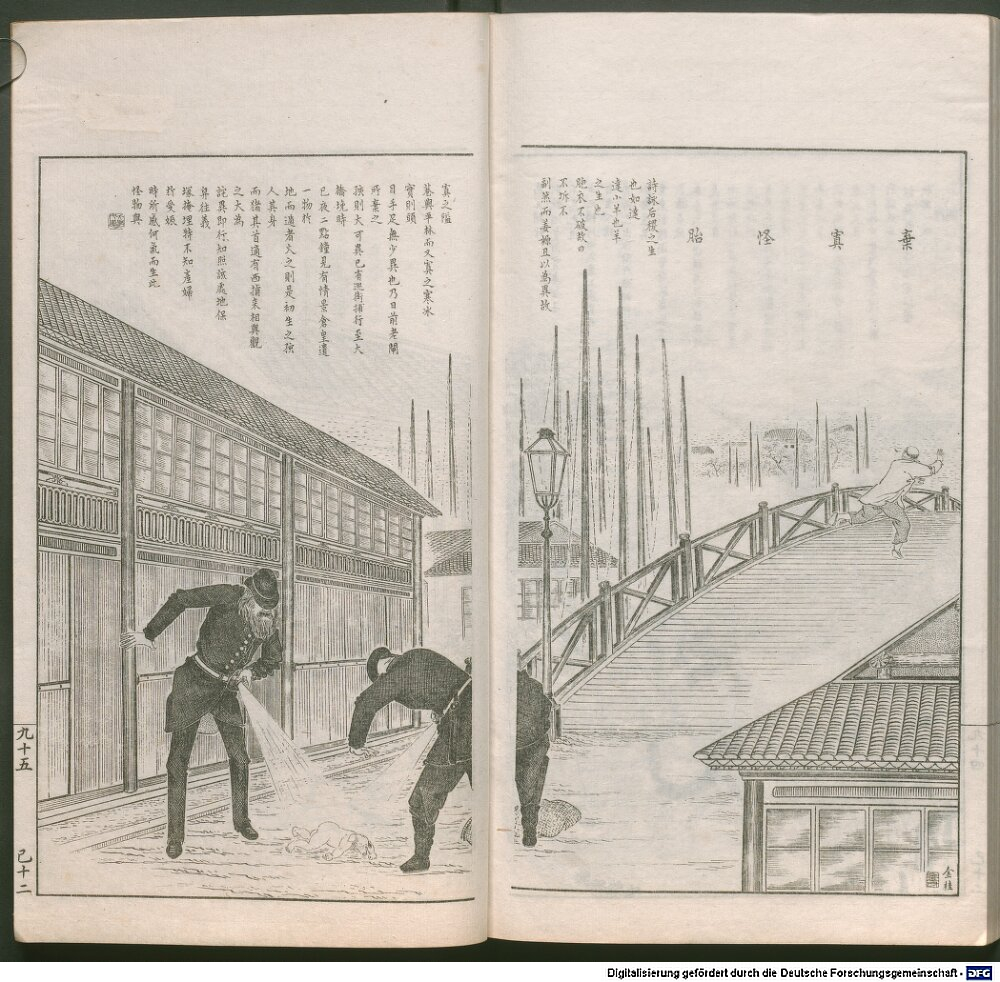 棄寘怪胎
詩詠后稷之生
也如達
達小羊也羊
之生也
胞衣不破故曰
不坼不
副然而姜嫄且以為異故
寘之隘
巷與平林而又寘之寒冰
實則頭
目手足無少異也乃日前老閘
所棄之
孩則大可異已有巡街捕行至大
橋境時
已夜二點鐘見有情景倉皇遺
一物於
地而遁者火之則是初生之孩
人其身
而豬其首適有西捕亦相與觀
之大為
詫異即行知照該處地保
舁往義
塚掩埋特不知產婦
於受娠
時所感何氣而生此
怪物與
金桂
九十五
已十二
Digitalisierung gefördert durch die Deutsche Forschungsgemeinschaft - DFG